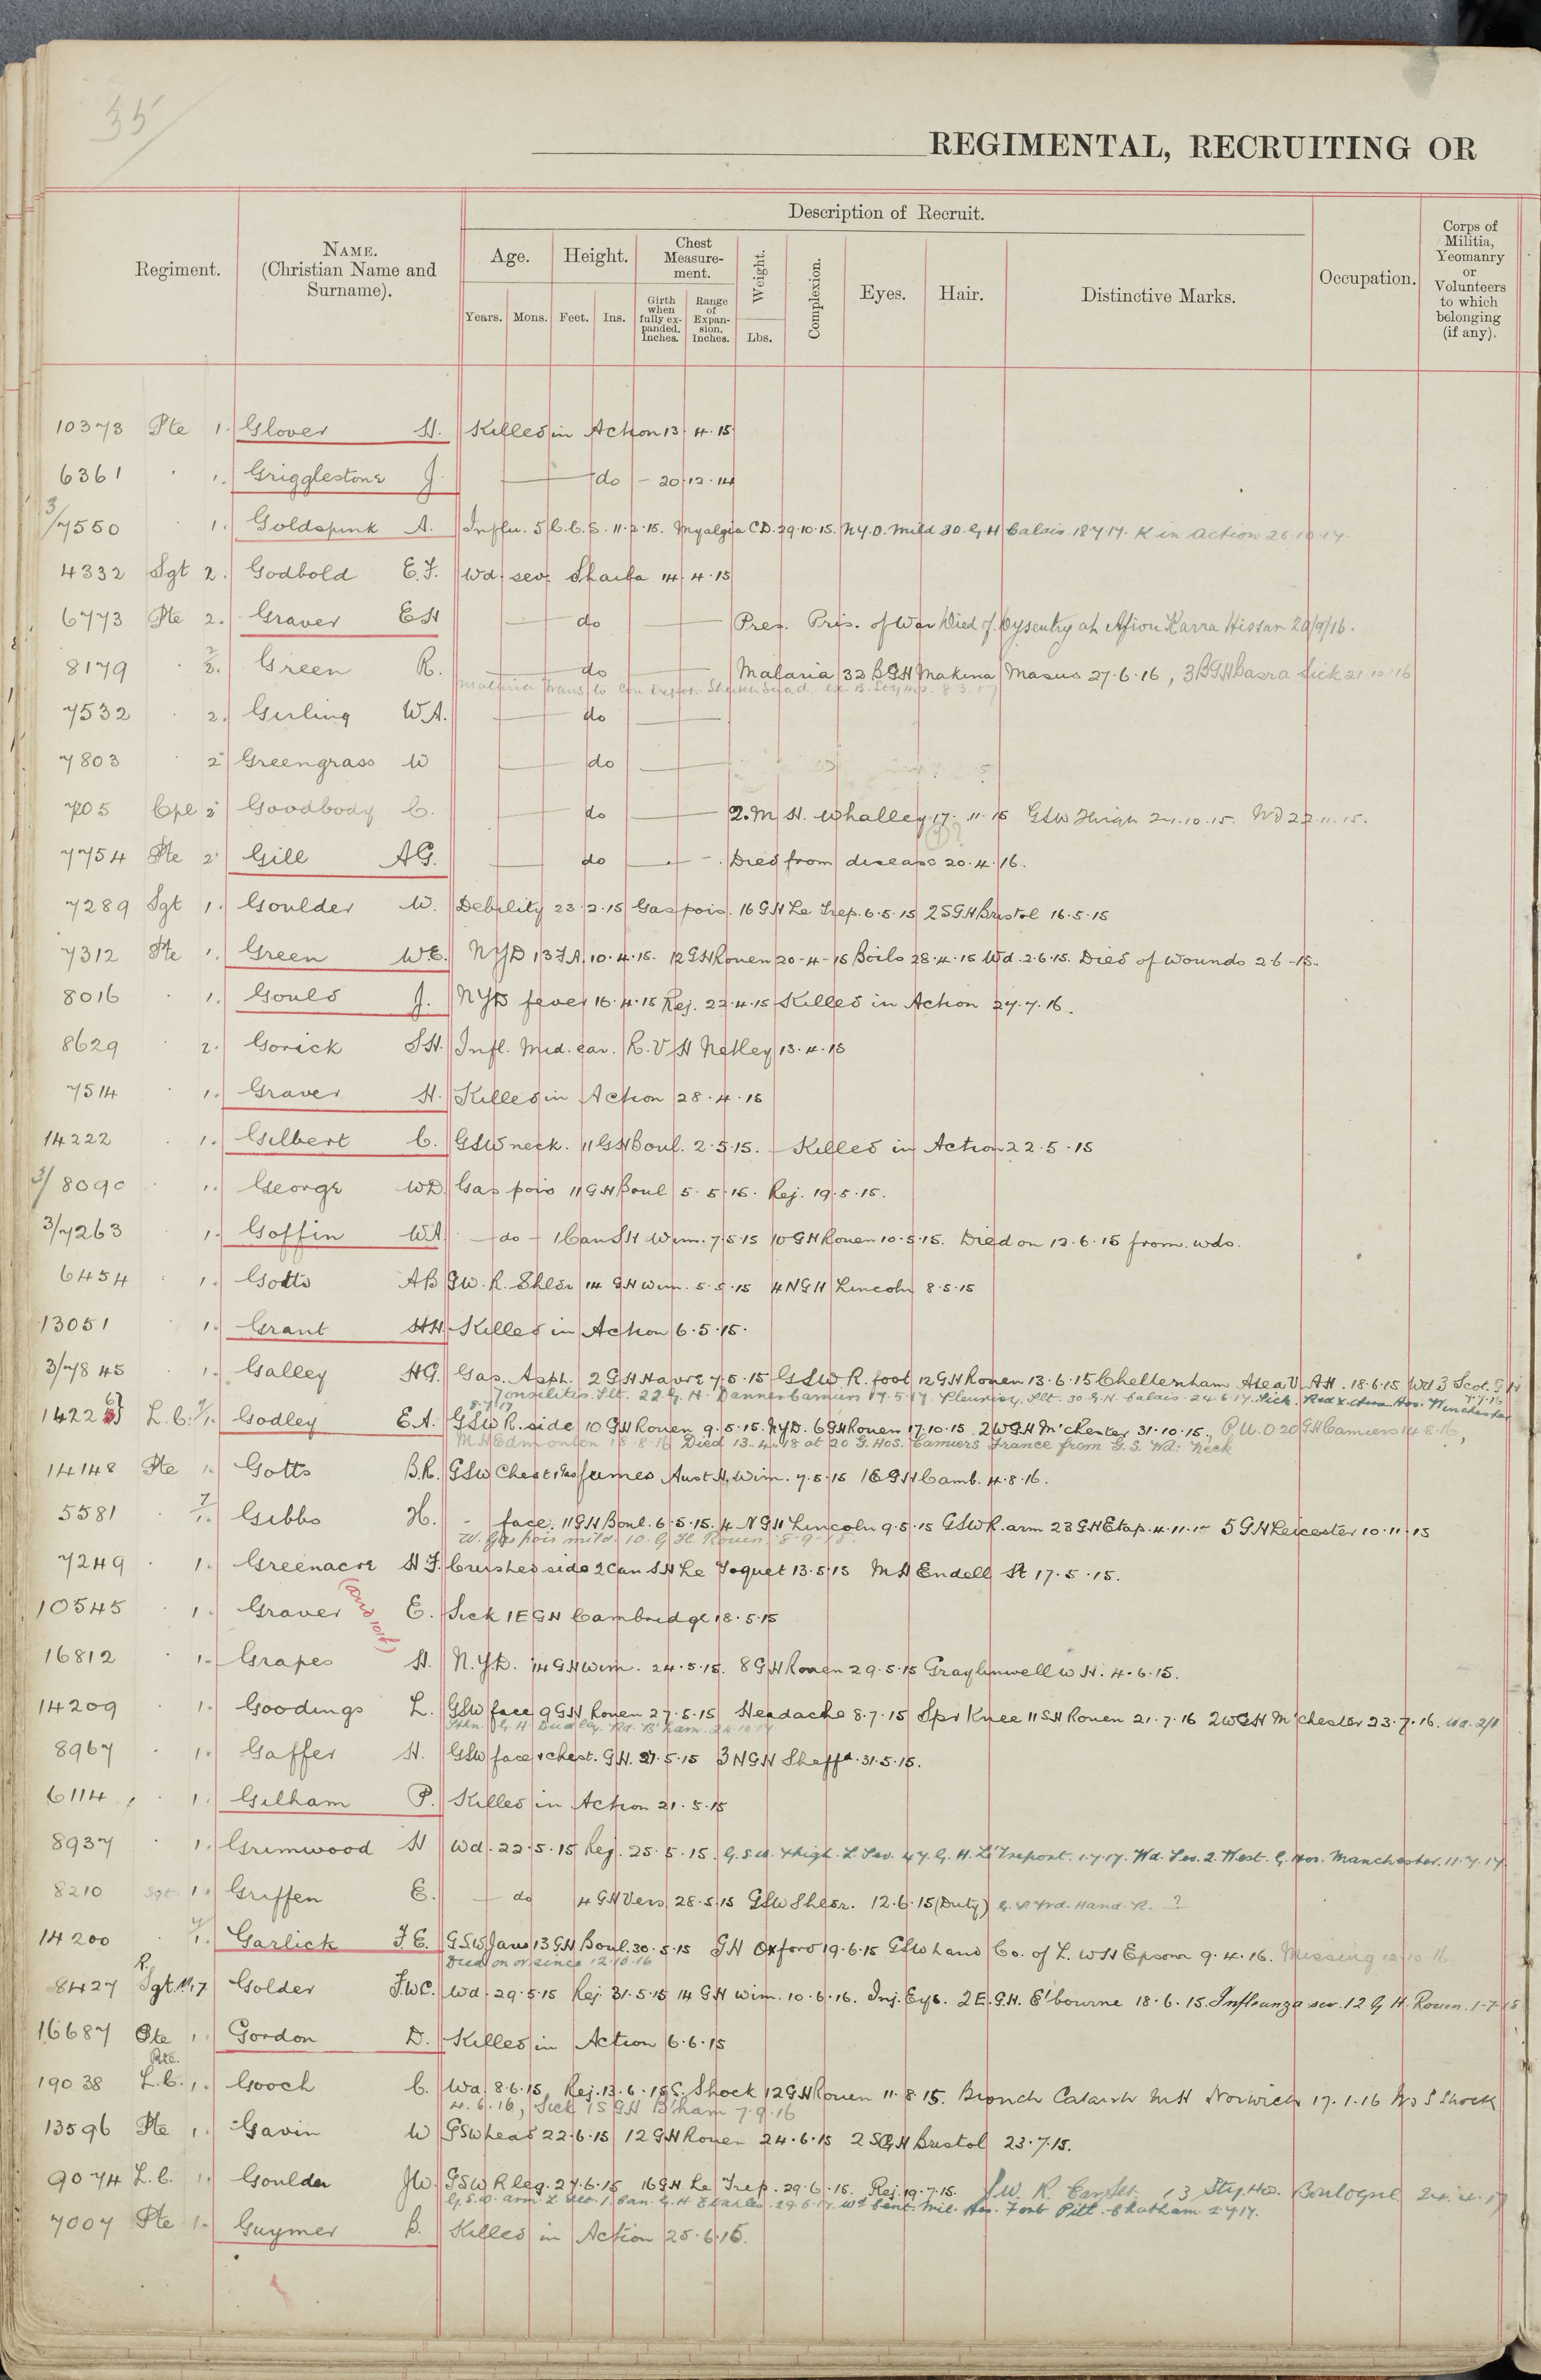 35
REGIMENTAL, RECRUITING OR
Regiment.
NAME.
(Christian Name and
Surname).
Description of Recruit.
Age.
Years. Mons.
Height.
Feet. Ins.
Chest
Measure-
ment.
Girth
when
fully ex-
panded.
Inches.
Range
of
Expan-
sion.
Inches.
Weight.
Lbs.
Complexion.
Eyes.
Hair.
Distinctive Marks.
Occupation.
Corps of
Militia,
Yeomanry
or
Volunteers
to which
belonging
(if any).
10373 Pte 1. Glover H. Killed in Action 13.4.15
6361 " 1. Grigglestone J. — do — 20.12.14
3/7550 " 1. Goldspink A. Influ. 5 C.C.S. 11.2.15. Myalgia CD. 29.10.15. N.Y.D. Mild 30. G.H Calais 18.7.17. K in action 26.10.17.
4332 Sgt 2. Godbold E.F. Wd. sev. Shaiba 14.4.15
6773 Pte 2. Graver EH — do — Pres. Pris. of War Died of Dysentry at Afion Karra Hissar 20/9/16.
8179 " 2. Green R. — do — Malaria 32 BGH Makina Masus 27.6.16, 3BGH Basra Sick 21.10.16
Malaria Trans to Con Depot. Sheikh Saad. 8.3.17
7532 " 2. Girling W.A. — do —
7803 " 2 Greengrass W — do —
7205 Cpl 2 Goodbody C. — do — 2.M.H. Whalley 17.11.15 GSW Thigh 24.10.15. Wd 22.11.15.
7754 Pte 2 Gill AG. — do — Died from disease 20.4.16.
7289 Sgt 1. Goulder W. Debility 23.2.15 Gas pois. 16 GH Le Trep. 6.5.15 2SGH Bristol 16.5.15
7312 Pte 1. Green W.E. NYD 13 F.A. 10.4.15. 12 GH Rouen 20-4-15 Boils 28.4.15 Wd. 2.6.15. Died of Wounds 2-6-15.
8016 " 1. Gould J. NYD fever 16.4.15 Rej. 22.4.15 Killed in Action 27.7.16.
8629 " 2. Gorick SH. Infl. Mid. ear. R.V.H Netley 13.4.15
7514 " 1. Graver H. Killed in Action 28.4.15
14222 " 1. Gilbert C. GSW neck. 11 GH Boul. 2.5.15. Killed in Action 22.5.15
3/8090 " 1. George WD. Gas pois 11 GH Boul 5.5.15. Rej. 19.5.15.
3/7263 1. Goffin WA — do — 1 Can SH Wim. 7.5.15 10 GH Rouen 10.5.15. Died on 12.6.15 from wds.
6454 " 1. Gotts AB GW. R. Shldr 14 GH Wim. 5.5.15 4NGH Lincoln 8.5.15
13051 " 1. Grant HH. Killed in Action 6.5.15.
3/7845 " 1. Galley HG. Gas. Asph. 2 GH Havre 7.5.15 GSW R. foot 12 GH Rouen 13.6.15 Cheltenham Area V.A.H. 18.6.15 Wd 3 Scot. G H
Tonsilitis. Slt. 22 G. H. Dannes Camiers 17.5.17. Pleurisy. Slt. 30 G.H. Calais. 24.6.17. Sick. Red X. Hos. Winchester
8.7.17
7.7.16
14226 L.C. 7/1. Godley E.A. GSW R. side 10 GH Rouen 9.5.15. NYD. 6 GH Rouen 17.10.15 2WGH M'chester 31.10.15. P.U.O 20 GH Camiers 14.8.16,
M H Edmonton 18.8.16 Died 13.4.18 at 20 G. Hos. Camiers France from G.S. Wd: Neck
14148 Pte 1. Gotts B.R. GSW Chest & Gas fumes Aust H. Wim. 7.5.15 1EGH Camb. 4.8.16.
5581 " 7/1. Gibbs H. " face. 11 GH Boul. 6.5.15. 4 NGH Lincoln 9.5.15 GSW R. arm 23 GH Etap. 4.11.15 5 GH Leicester 10.11.15
W. Gas pois mild. 10. G.H. Rouen. 8-9-18.
7249 " 1. Greenacre H F. Crushed side 2 Can SH Le Toquet 13.5.15 MH Endell St 17.5.15.
10545 " 1. Graver E. Sick 1EGH Cambridge 18.5.15
16812 " 1. Grapes H. N.Y.D. 14 GH Wim. 24.5.15. 8 GH Rouen 29.5.15 Graylinwell W H. 4.6.15.
14209 " 1. Goodings L. GSW face 9 GH Rouen 27.5.15 Headache 8.7.15 Spr Knee 11 SH Rouen 21.7.16 2WGH M'chester 23.7.16.
G. H. Dudley. Rd. B'ham. 24.10.17
8967 " 1. Gaffer H. GSW face & chest. G.H. 27.5.15 3NGH Sheffd. 31.5.15.
6114 " 1. Gilham P. Killed in Action 21.5.15
8937 " 1. Grimwood H Wd. 22.5.15 Rej. 25.5.15. G.S.W. Thigh. L. Sev. 47. G. H. Le Treport. 1.7.17. Wd. Sev. 2. West. G. Hos. Manchester. 11.7.17.
8210 Sgt. 1. Griffen E. — do 4 GH Vers 28.5.15 GSW Shldr. 12.6.15 (Duty) Hand. R. ?
14200 " 7/1. Garlick F.E. GSW Jaw 13 GH Boul. 30.5.15 GH Oxford 19.6.15 GSW hand Co. of L. WH Epsom 9.4.16. Missing 12.10.16
Died on or since 12.10.16
8427 R. Sgt. M. 7 Golder F.W.C. Wd. 29.5.15 Rej 31.5.15 14 GH Wim. 10.6.16. Inj. Eye. 2E.G.H. E'bourne 18.6.15. Influenza sev. 12 G H. Rouen. 1-7-18
16687 Pte 1. Gordon D. Killed in Action 6.6.15
19038 Pte. L.C. 1. Gooch C. Wd 8.6.15, Rej. 13.6.15 S. Shock 12 GH Rouen 11.8.15. Bronch Catarrh MH Norwich 17.1.16 Wd S Shock
4.6.16, Sick 1S GH B'ham 7.9.16
13596 Pte 1. Gavin W GSW head 22.6.15 12 GH Rouen 24.6.15 2SGH Bristol 23.7.15.
9074 L.C. 1. Goulder JW. GSW R leg. 27.6.15 16 GH Le Trep. 29.6.15. Rej. 19.7.15. SW. R. Ear Slt. 13 Sty. Hos. Boulogne 24.4.17
G.S.W. arm L Slt. 1. Can. G. H. Etaples. 29.6.17. Wd Cent. Mil. Hos. Fort Pitt. Chatham 2.7.17.
7007 Pte 1. Guymer B. Killed in Action 25.6.15.